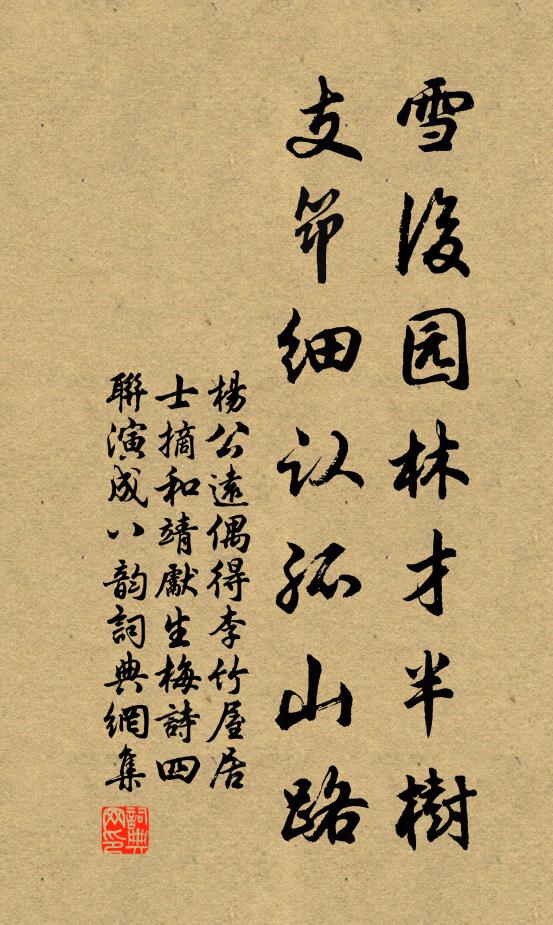 雪後园林才半樹
支筇细认孤山路
楊公遠偶得李竹屋居
士摘和靖獻生梅詩四
聯演成八韵詞典網集
詞典
网印